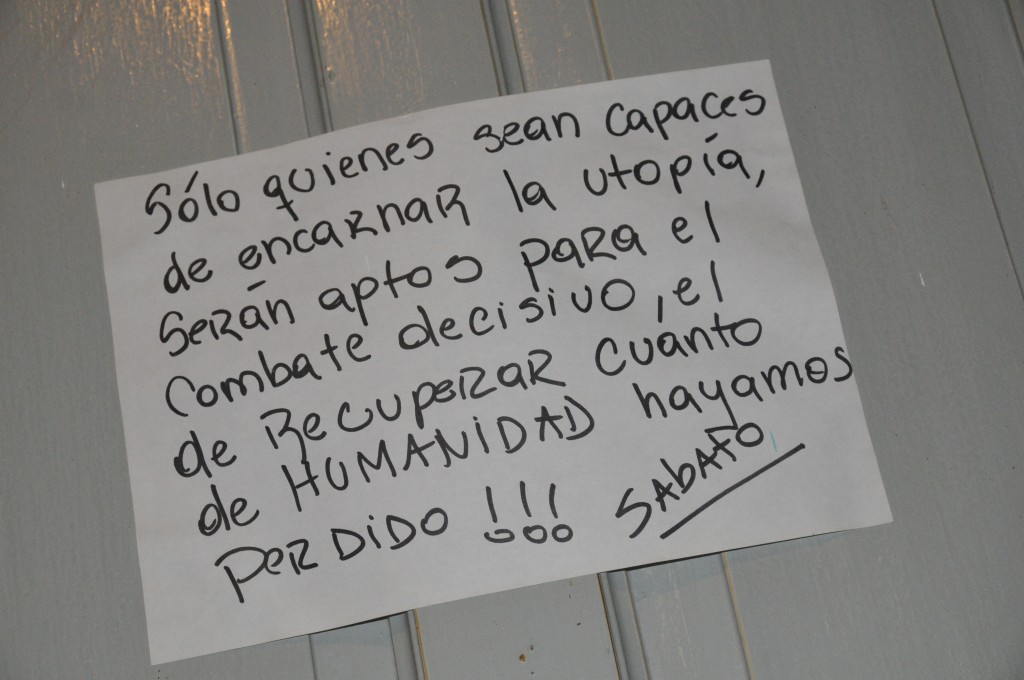 Sólo quienes sean capaces
de encarnar la utopía,
serán aptos para el
combate decisivo, el
de Recuperar cuánto
de HUMANIDAD hayamos
PERDIDO !!! SAbATO